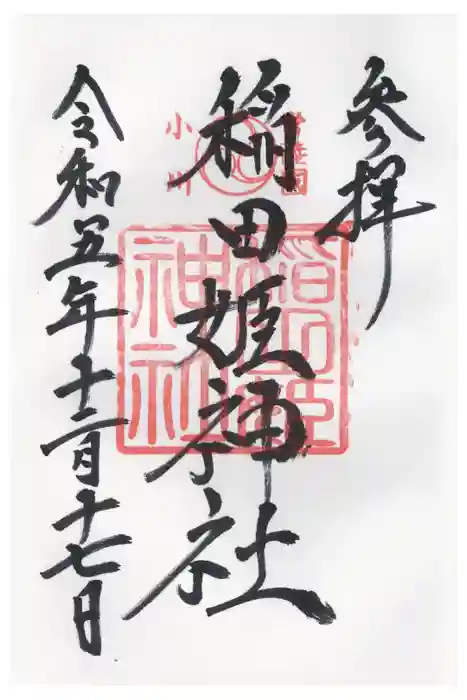 参拝
稲田姫神社
令和五年十二月十七日
常陸国
小川
稲田姫
神社